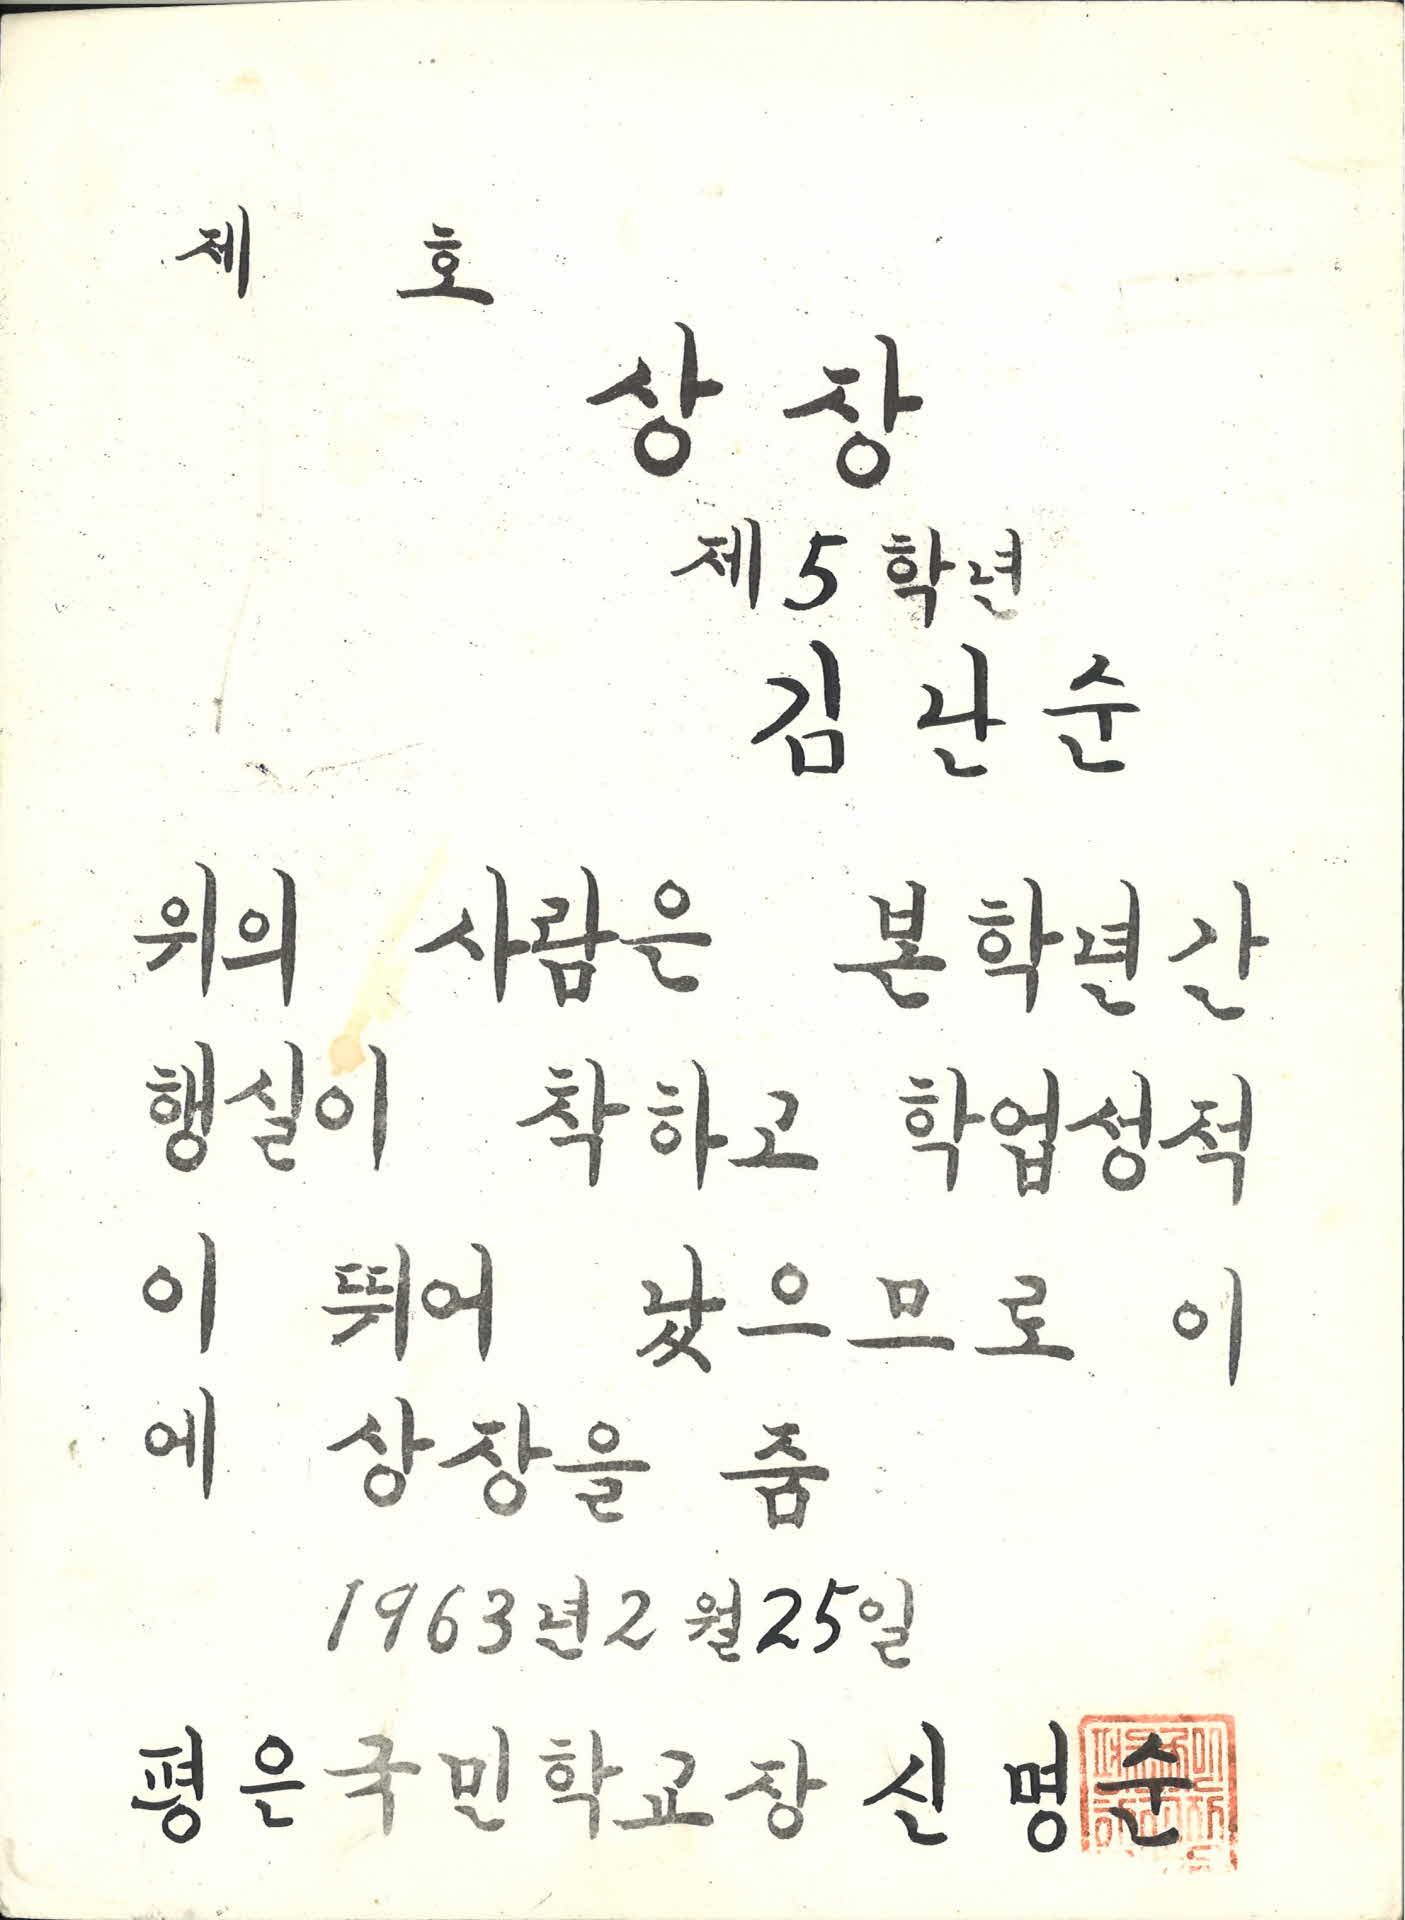 제 호
상 장
제 5 학년
김 난 순
위의 사람은 본학년간
행실이 착하고 학업성적
이 뛰어 났으므로 이
에 상장을 줌
1963년 2월 25일
평은국민학교장 신 명 순